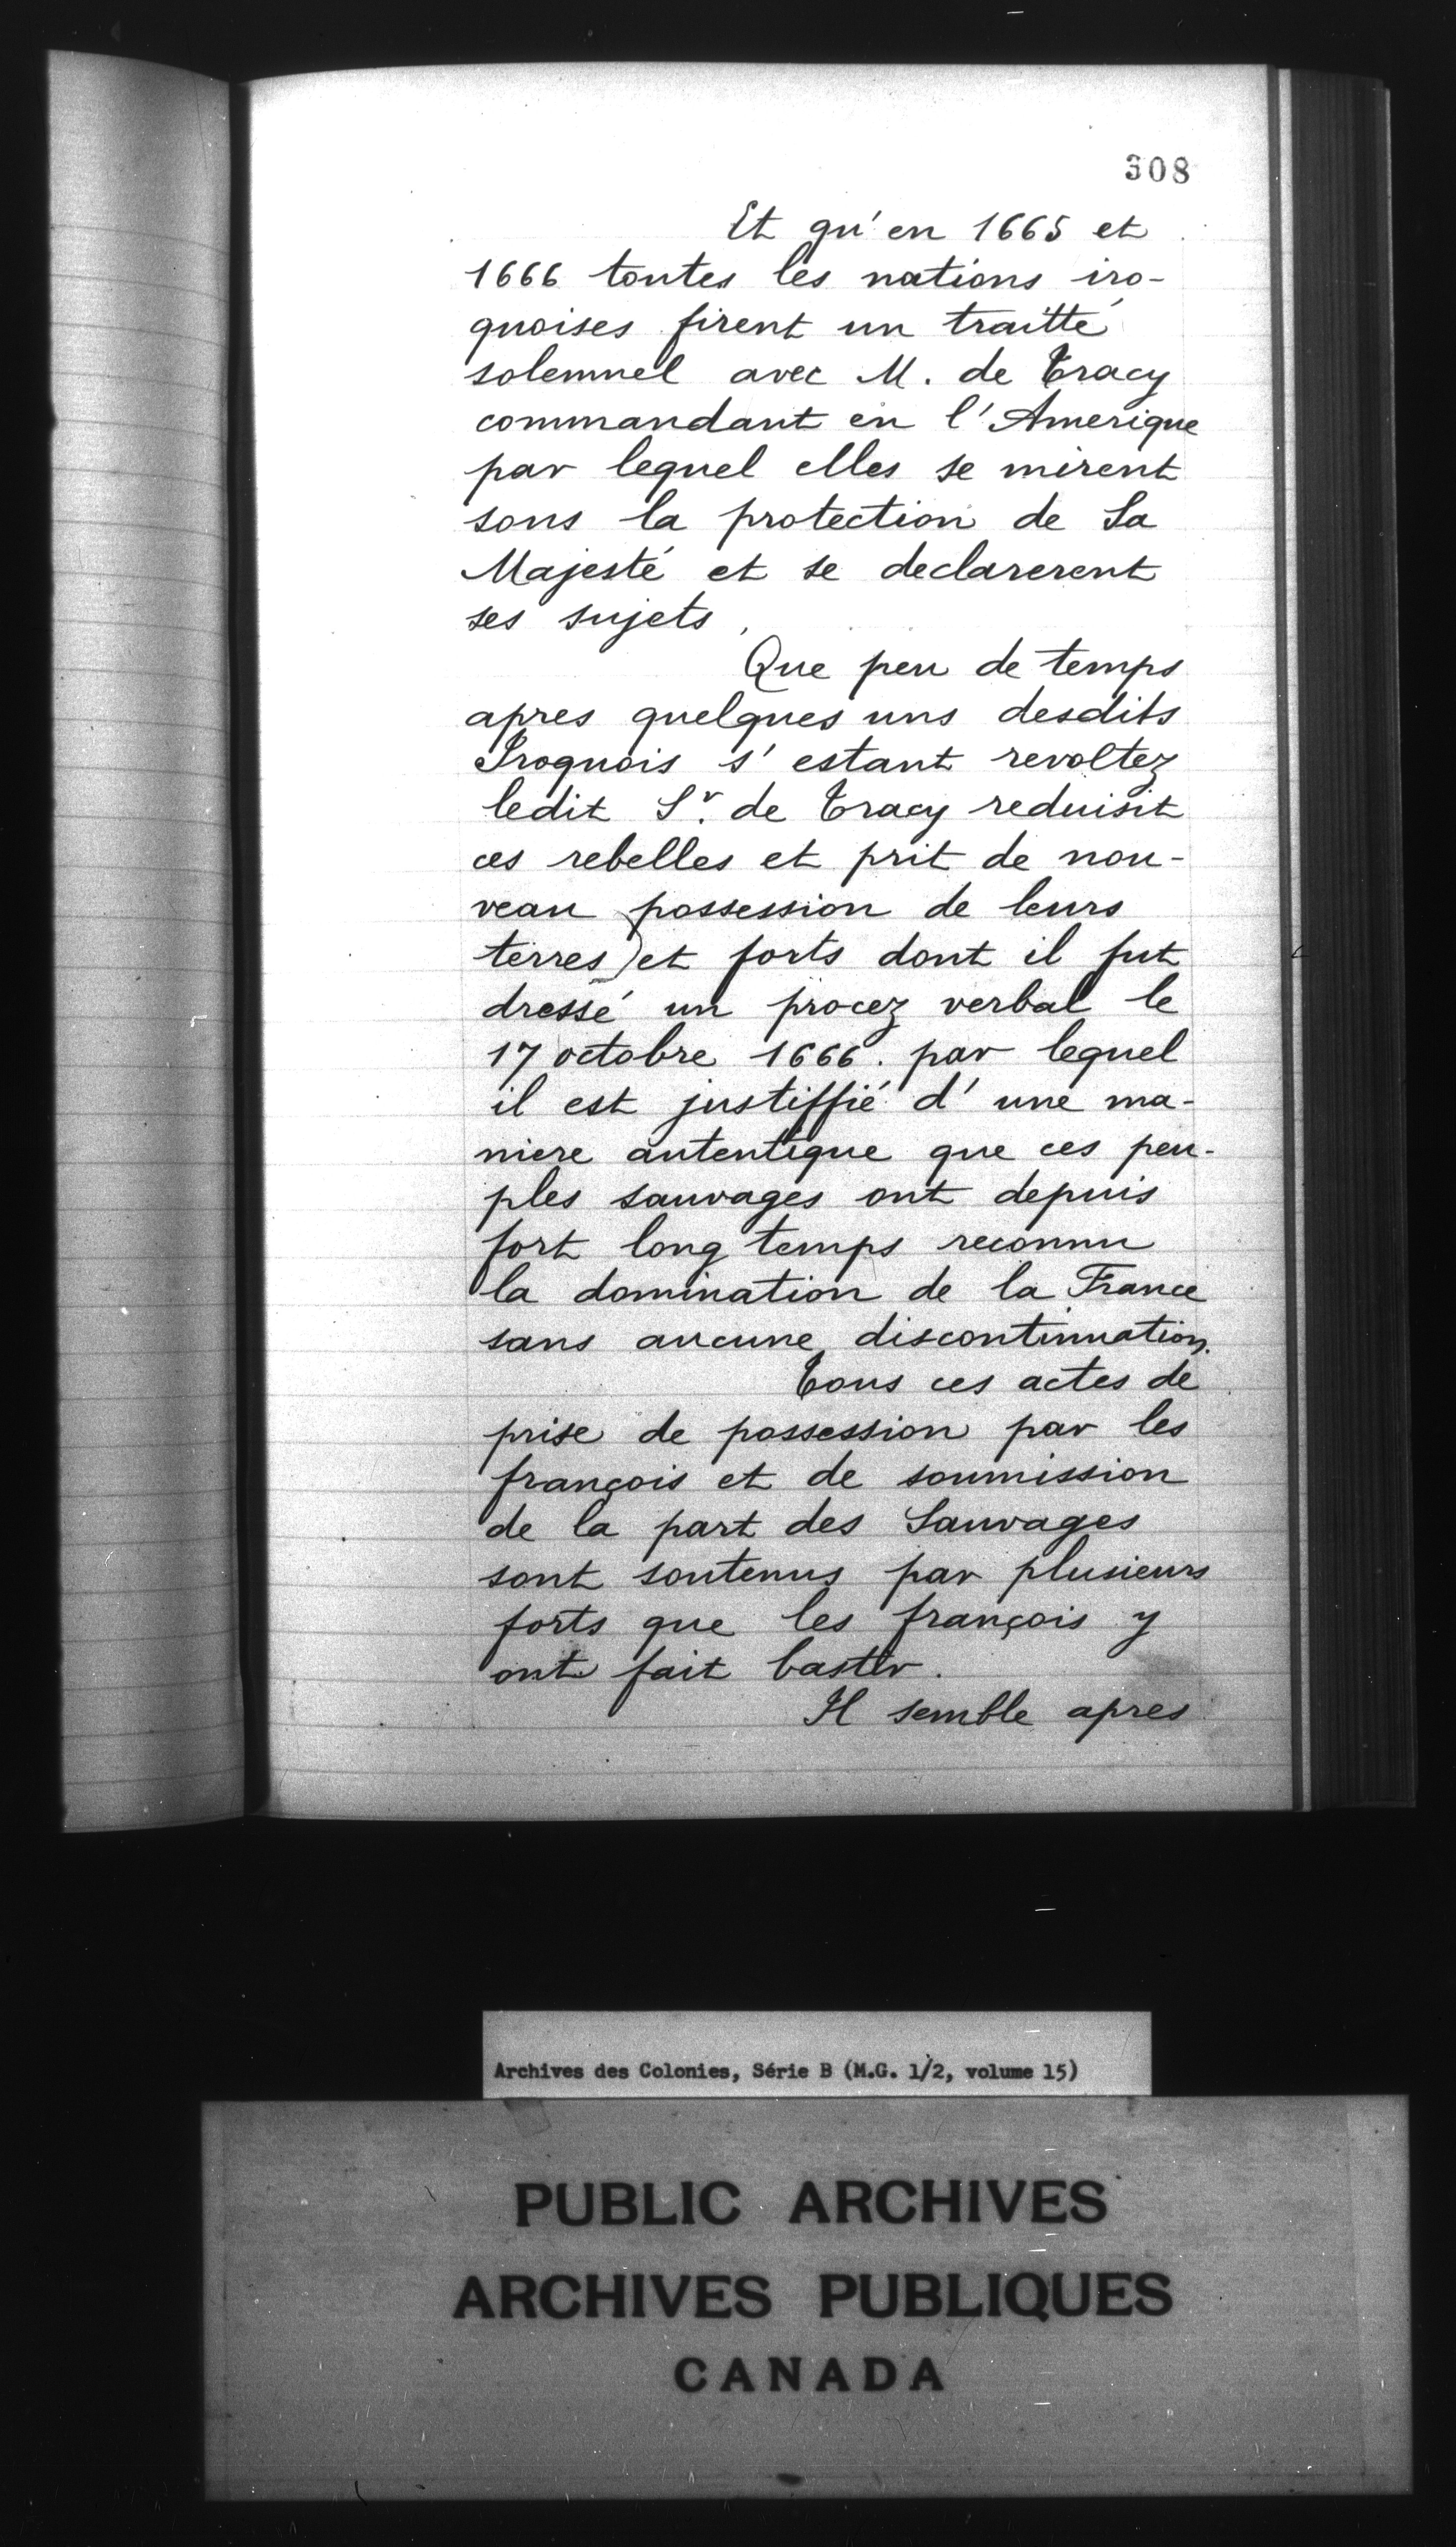 308
Et qu'en 1665 et
1666 toutes les nations iro-
quoises firent un traitté
solemnel avec M. de Tracy
commandant en l'Amerique
par lequel elles se mirent
sous la protection de Sa
Majesté et se declarerent
ses sujets.
Que peu de temps
apres quelques uns desdits
Iroquois s'estant revoltez
ledit Sr. de Tracy reduisit
ces rebelles et prit de nou-
veau possession de leurs
terres et forts dont il fut
dressé un procez verbal le
17 octobre 1666. par lequel
il est justiffié d'une ma-
niere autentique que ces peu-
ples sauvages ont depuis
fort long temps reconnu
la domination de la France
sans aucune discontinuation.
Tous ces actes de
prise de possession par les
françois et de soumission
de la part des Sauvages
sont soutenus par plusieurs
forts que les françois y
ont fait bastir.
Il semble apres
Archives des Colonies, Série B (M.G. 1/2, volume 15)
PUBLIC ARCHIVES
ARCHIVES PUBLIQUES
CANADA